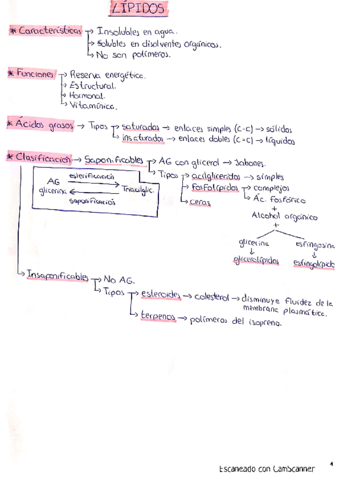 LÍPIDOS
* Características → Insolubles en agua.
→ Solubles en disolventes orgánicos.
→ No son polímeros.
* Funciones → Reserva energética.
→ Estructural.
→ Hormonal.
→ Vitamínica.
* Ácidos grasos → Tipos → saturados → enlaces simples (C-C) → sólidos
→ insaturados → enlaces dobles (C=C) → líquidos
* Clasificación → Saponificables → AG con glicerol → Jabones.
→ Tipos → acilglicéridos → simples
→ fosfolípidos → complejos
→ Ác. fosfórico
+
Alcohol orgánico
+
glicerina esfingosina
↓ ↓
esfingolípido
→ ceras
esterificación
AG → Triacilglic.
glicerina ←
saponificación
→ Insaponificables → No AG.
→ Tipos → esteroides → colesterol → disminuye fluidez de la
membrana plasmática.
→ terpenos → polímeros del isopreno.
4
Escaneado con CamScanner